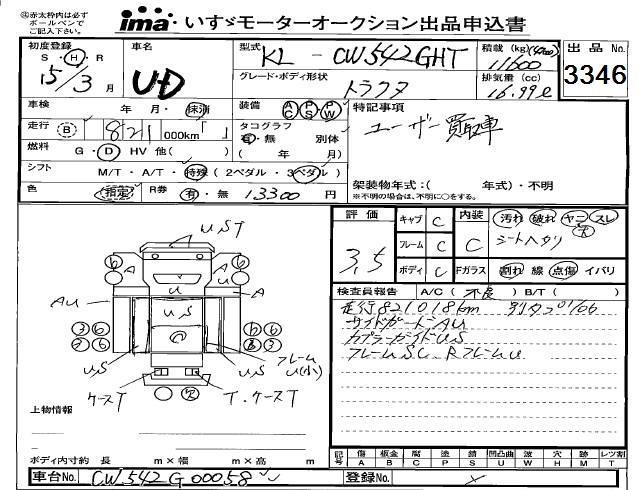 ㊟赤太枠内は必ず
ボールペンで
ご記入下さい。
ima いすゞモーターオークション出品申込書
初度登録
S ・ H ・ R
15/3 月
車名
UD
型式
KL - CW542GHT
積載 (kg)
11600
グレード・ボディ形状
トラクタ
排気量 (cc)
16.99ℓ
出品No.
3346
車検 年・月・抹消
装備 AC PS PW
特記事項
ユーザー買取車
走行 B 821 000km「 」
タコグラフ
有・無 別体
( 年 月)
燃料 G・D HV 他( )
シフト M/T・A/T・特殊 (2ペダル・3ペダル)
色 指定 R券 有・無 13300円
架装物年式:( 年式)・不明
※不明の場合は、不明に○をする。
評価
3.5
キャブ C
フレーム C
ボディ C
内装 C
Fガラス
汚れ 破れ ヤニ スレ
シートヘタリ
割れ 線 点傷 イバリ
検査員報告 A/C( 不良 ) B/T( )
走行821018km
サイドガードAU
カプラーガイドUS
フレームSC Rフレームu
UST
A
A
u
AU
A
US
uS
uS
フレーム
u(小)
ケースT
T.ケースT
上物情報
ボディ内寸約 長 m×幅 m×高 m
記号 傷 A 板金 B 腐 C 塗 P 錆 S 凹凸曲 U 波 W 穴 H 跡 M レツ割 T
車台No. CW542G00058
登録No.